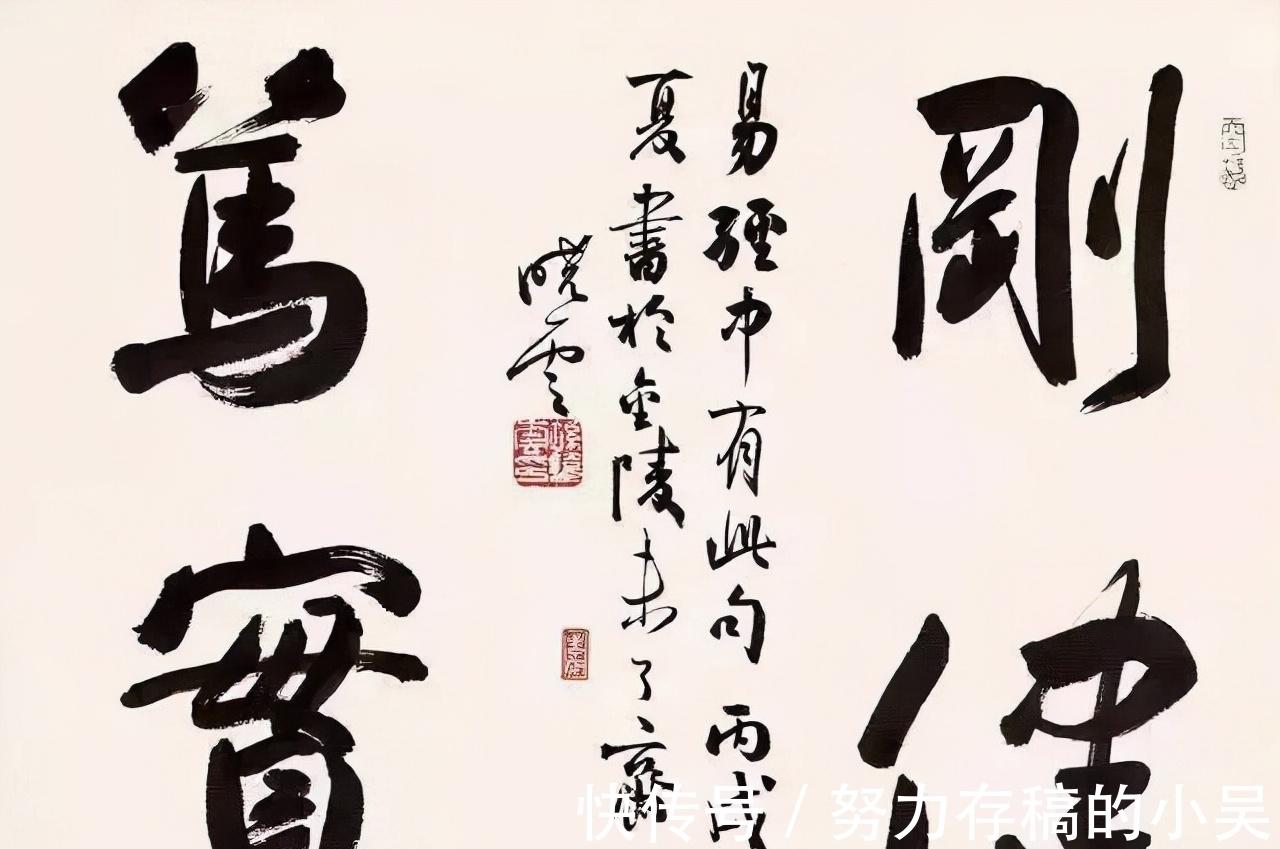 剛健
篤實
易經中有此句丙戌
夏書於金陵未了齋
曉雲
快传号/努力存稿的小吴